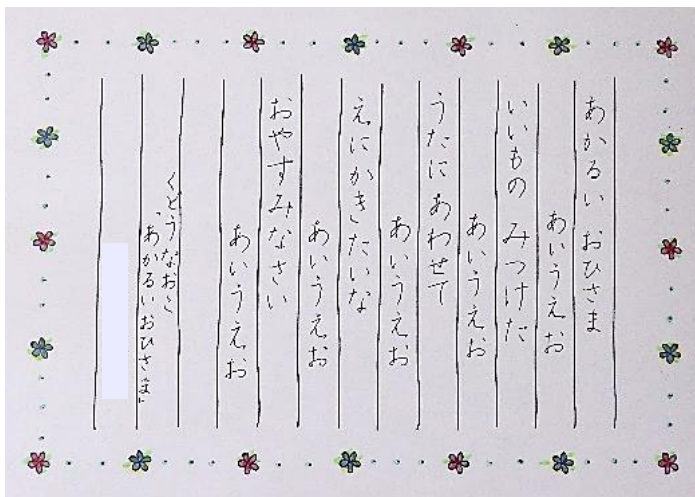 あかるい おひさま
あいうえお
いいもの みつけた
あいうえお
うたに あわせて
あいうえお
えに かきたいな
あいうえお
おやすみなさい
あいうえお
くどうなおこ
「あかるいおひさま」